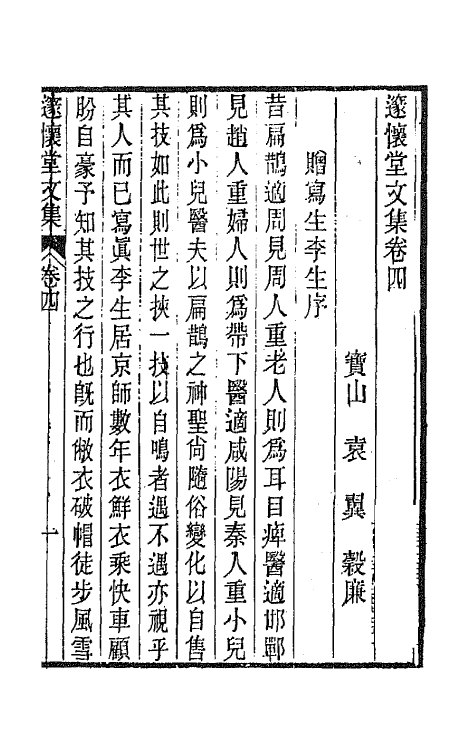 邃懷堂文集卷四
寶山 袁翼 穀廉
贈寫生李生序
昔扁鵲適周見周人重老人則爲耳目痺醫適邯鄲
見趙人重婦人則爲帶下醫適咸陽見秦人重小兒
則爲小兒醫夫以扁鵲之神聖尙隨俗變化以自售
其技如此則世之挾一技以自鳴者遇不遇亦視乎
其人而已寫眞李生居京師數年衣鮮衣乘快車顧
盼自豪予知其技之行也旣而敝衣破帽徒步風雪
邃懷堂文集 卷四 一